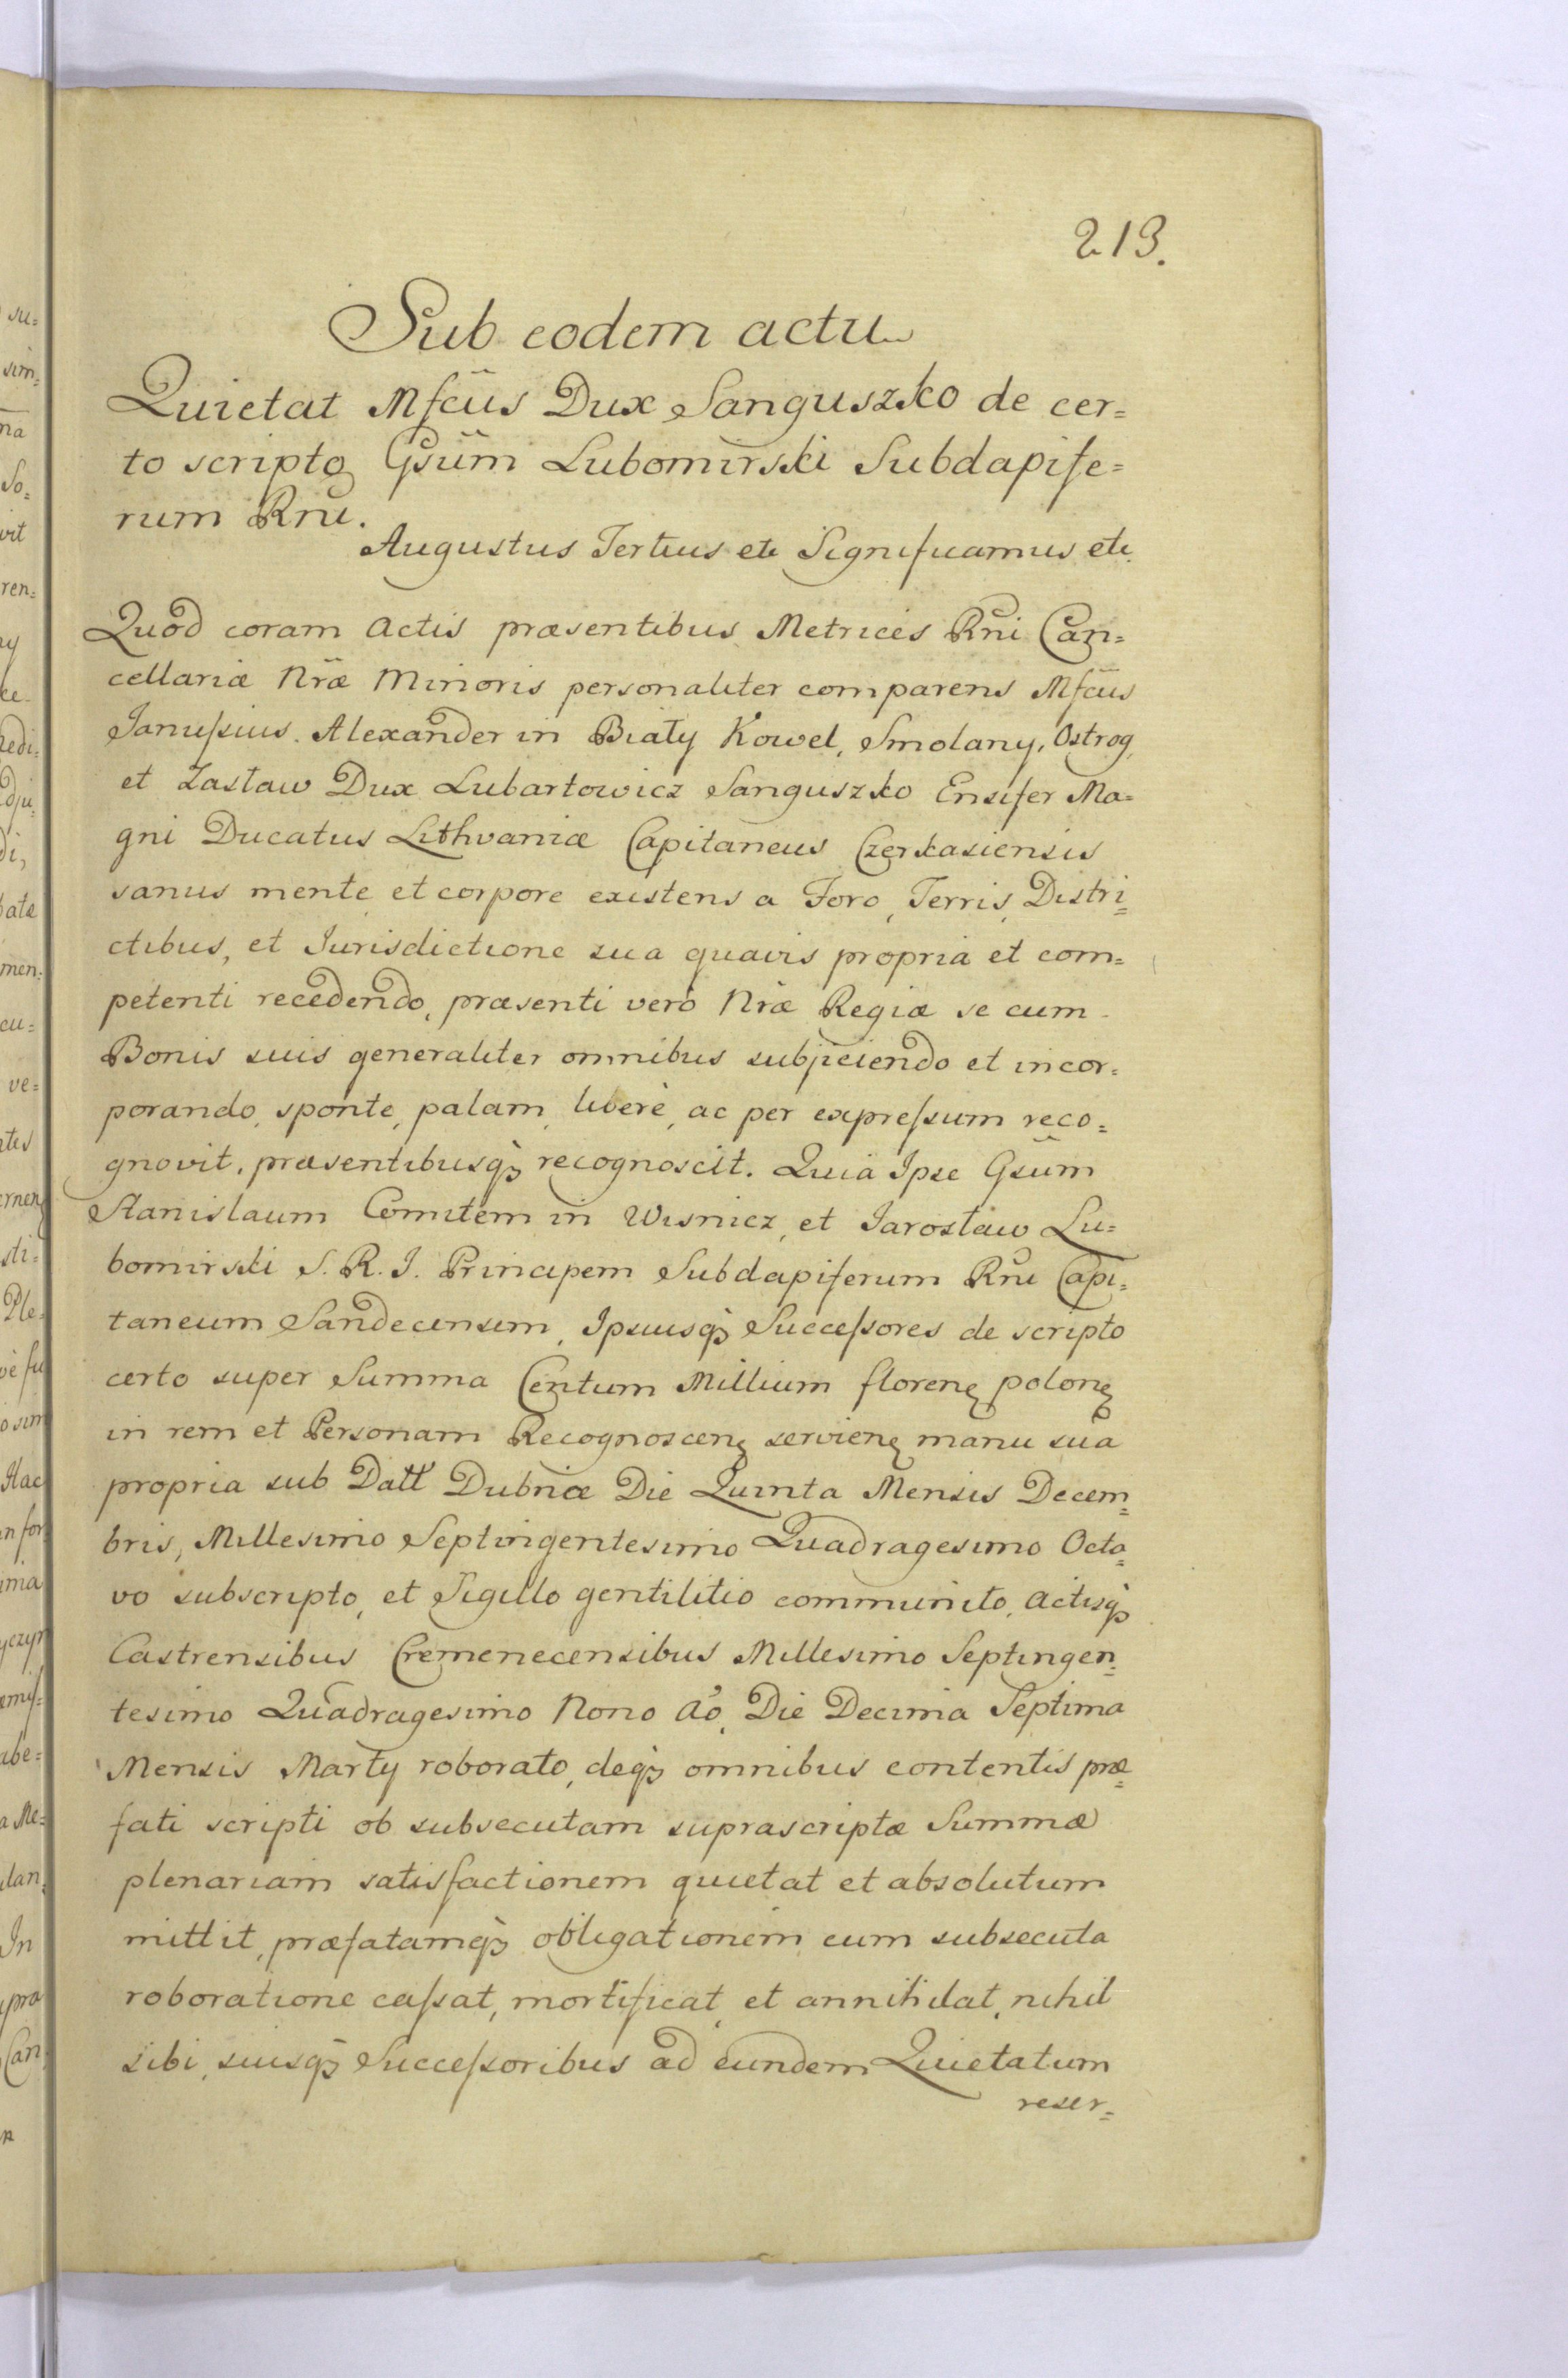 213.
Sub eodem actu
Quietat Mfcũs Dux Sanguszko de cer=
to scripto Gsũm Lubomirski Subdapife=
rum Rnĩ.
Augustus Tertius etc Significamus etc
Quod coram Actis præsentibus Metrices Rñi Can=
cellariæ Nr̃æ Minoris personaliter comparens Mfcũs
Januſsius Alexander in Biały Kowel, Smolany, Ostrog,
et Zasław Dux Lubartowicz Sanguszko Ensifer Ma=
gni Ducatus Lithvaniæ Capitaneus Czerkasiensis
sanus mente et corpore existens a Foro, Terris, Distri=
ctibus, et Jurisdictione sua quavis propria et com=
petenti recedendo, præsenti verò Nr̃æ Regiæ se cum
Bonis suis generaliter omnibus subjiciendo et incor=
porando, sponte, palam, liberè, ac per expreſsum reco=
gnovit, præsentibusqꝫ recognoscit. Quia Ipse Gsũm
Stanislaum Comitem in Wisnicz, et Jarosław Lu=
bomirski S. R. I. Principem Subdapiferum Rñi Capi=
taneum Sandecensem, Ipsiusqꝫ Succeſsores de scripto
certo super Summa Centum Millium floren polon
in rem et Personam Recognoscen servien manu sua
propria sub Datt Dubniæ Die Quinta Mensis Decem=
bris, Millesimo Septingentesimo Quadragesimo Octa=
vo subscripto, et Sigillo gentilitio communito, Actisqꝫ
Castrensibus Cremenecensibus Millesimo Septingen=
tesimo Quadragesimo Nono Aõ, Die Decima Septima
Mensis Marty roborato, deqꝫ omnibus contentis præ=
fati scripti ob subsecutam suprascriptæ Summæ
plenariam satisfactionem quietat et absolutum
mittit, præfatamqꝫ obligationem cum subsecuta
roboratione caſsat, mortificat, et annihilat, nihil
sibi, suisqꝫ Succeſsoribus ad eundem Quietatum
reser=